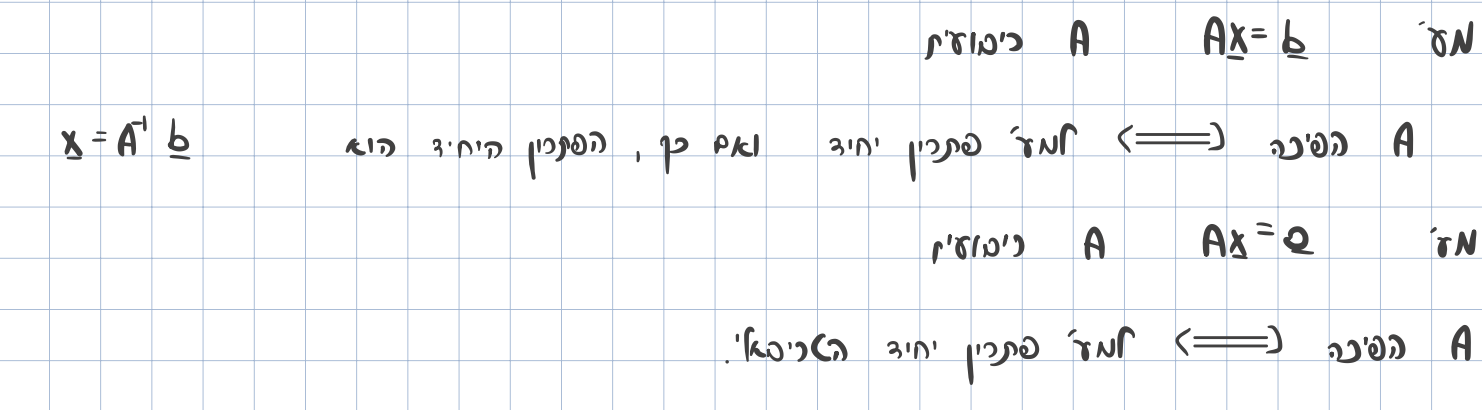 מע' Ax = b A ריבועית
A הפיכה <==> למע' פתרון יחיד ואם כך, הפתרון היחיד הוא x = A⁻¹ b
מע' Ax = 0 A ריבועית
A הפיכה <==> למע' פתרון יחיד הטריביאלי.